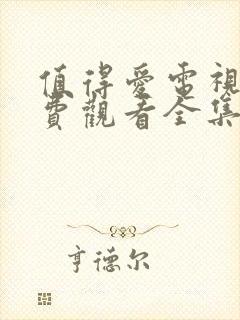 值得愛電視
費觀看全集
亨德尔